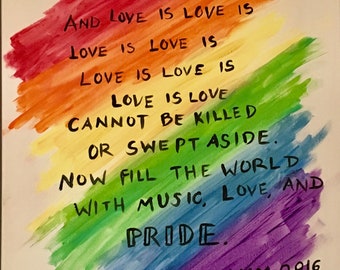 AND LOVE IS LOVE IS
LOVE IS LOVE IS
LOVE IS LOVE IS
LOVE IS LOVE
CANNOT BE KILLED
OR SWEPT ASIDE.
NOW FILL THE WORLD
WITH MUSIC, LOVE, AND
PRIDE.
2016